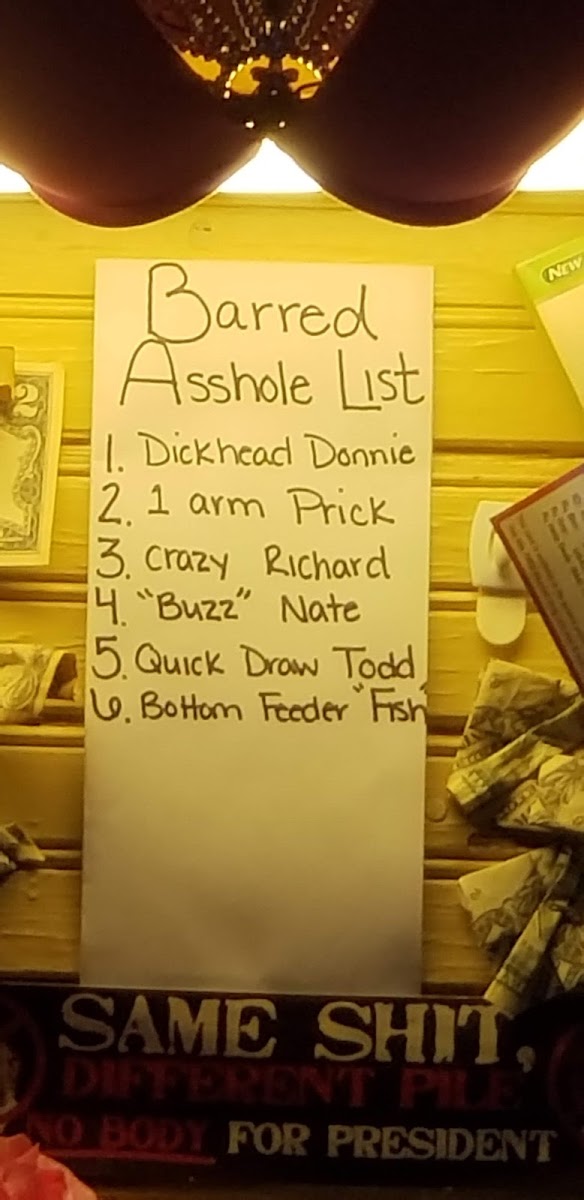 Barred
Asshole List
1. Dickhead Donnie
2. 1 arm Prick
3. Crazy Richard
4. "Buzz" Nate
5. Quick Draw Todd
6. Bottom Feeder "Fish"
NEW
2
SAME SHIT,
DIFFERENT PILE
NO BODY FOR PRESIDENT